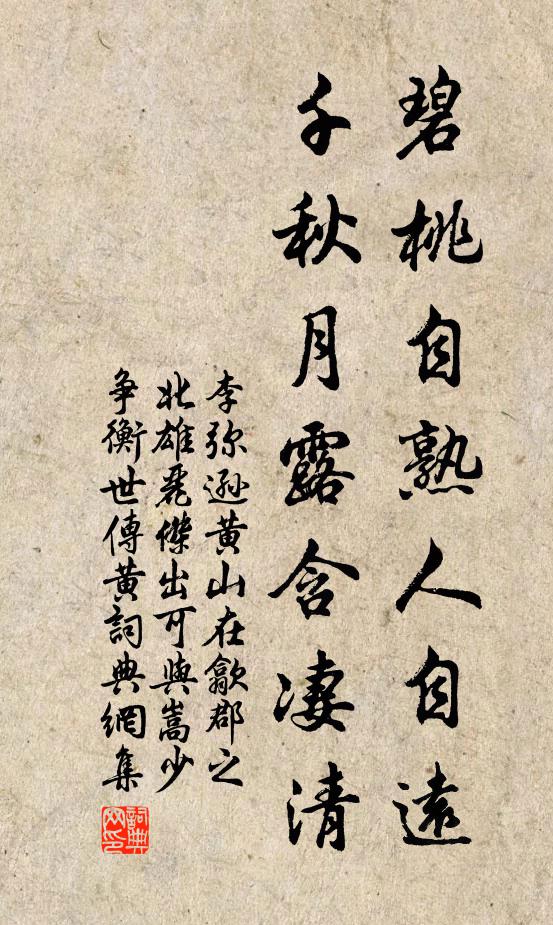 碧桃自熟人自遠
千秋月露含凄清
李弥遜黄山在歙郡之
北雄麗傑出可與嵩少
争衡世傳黄詞典網集
詞典
网印